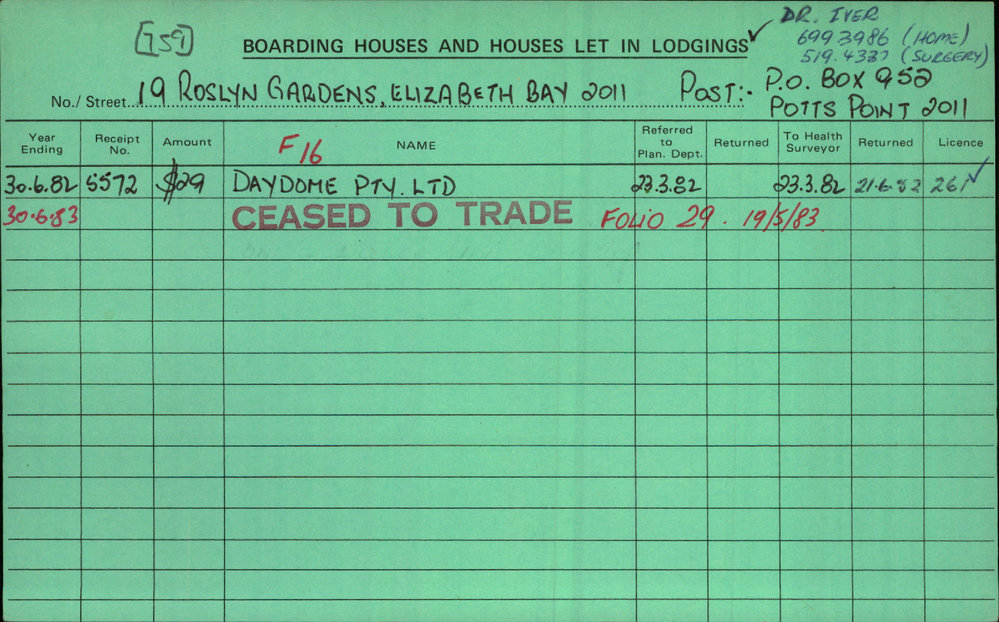 [759]
DR. IYER
BOARDING HOUSES AND HOUSES LET IN LODGINGS
699 3986 (HOME)
519.4337 (SURGERY)
No./ Street 19 ROSLYN GARDENS, ELIZABETH BAY 2011 POST:- P.O. BOX 952
POTTS POINT 2011
Year Ending Receipt No. Amount F 16 NAME Referred to Plan. Dept. Returned To Health Surveyor Returned Licence
30.6.82 5572 $29 DAYDOME PTY. LTD 23.3.82 23.3.82 21.6.82 261
30.6.83 CEASED TO TRADE FOLIO 29. 19/5/83